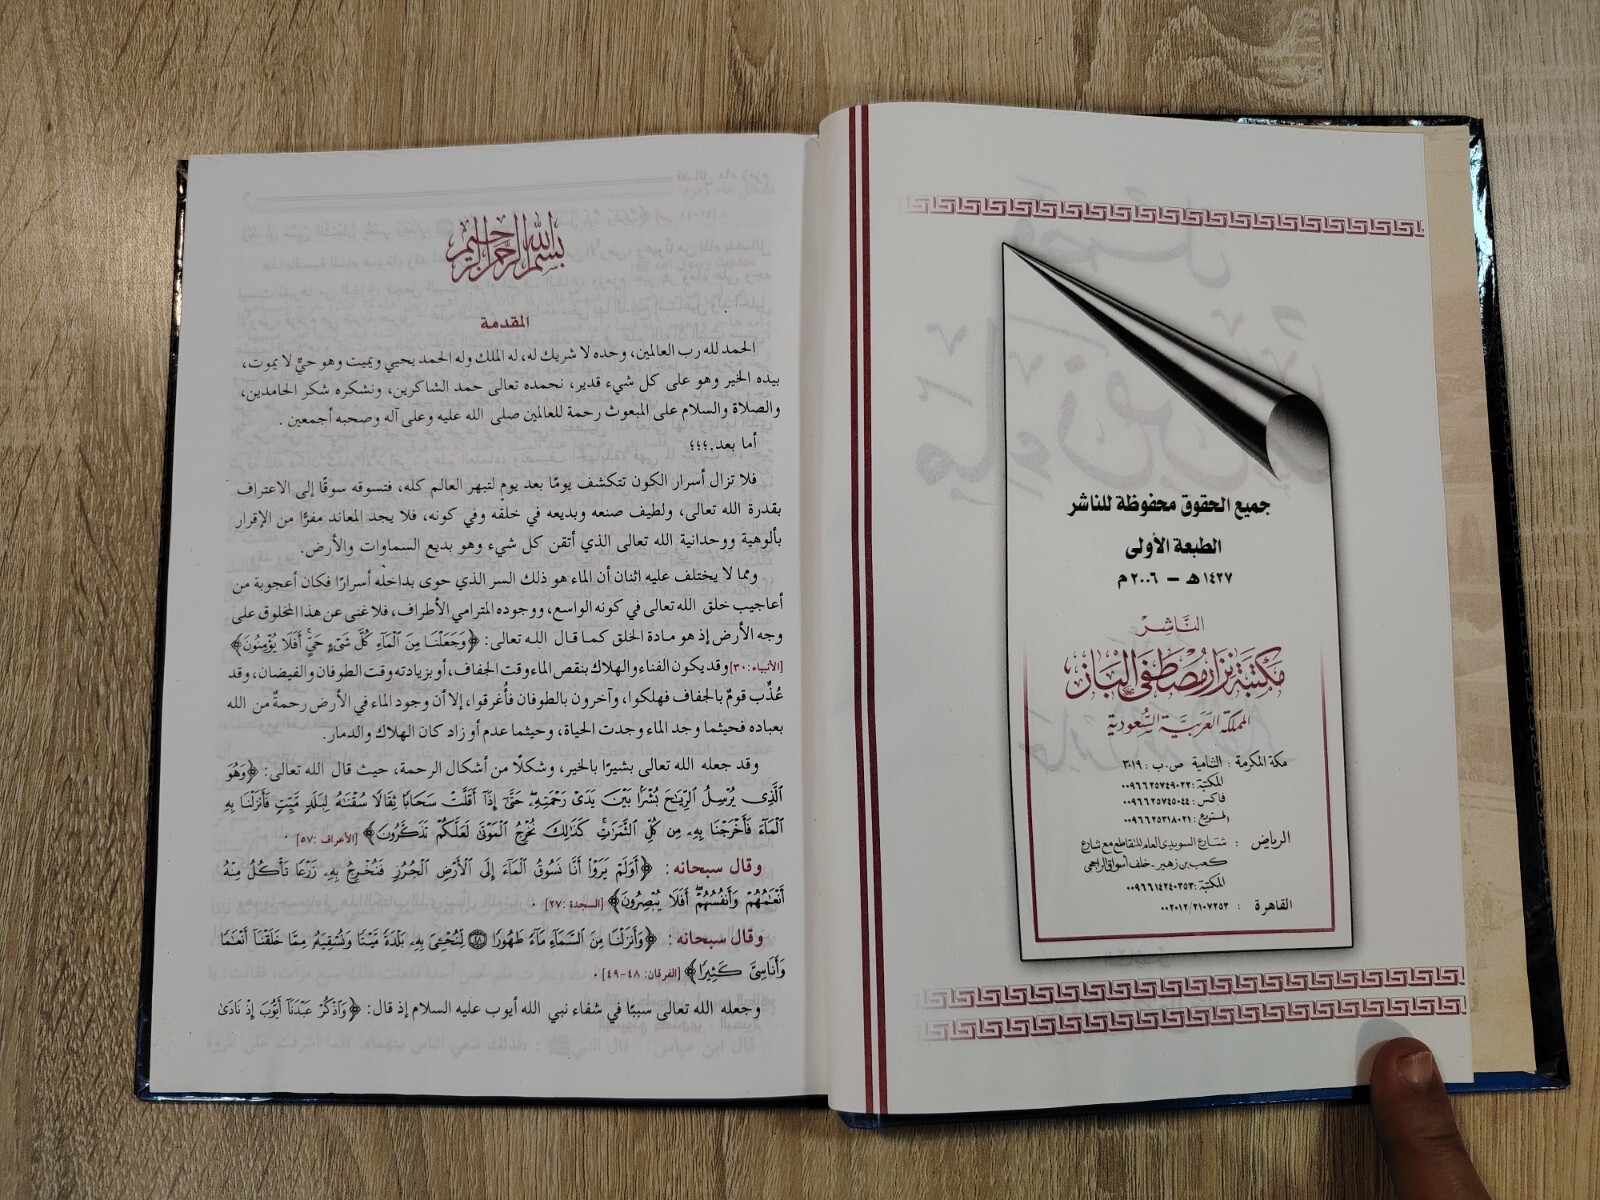 جميع الحقوق محفوظة للناشر
الطبعة الأولى
١٤٢٧ هـ - ٢٠٠٦ م
الناشر
مكتبة نزار مصطفى الباز
المملكة العربية السعودية
مكة المكرمة : الشامية ص.ب : ٣٠١٩
المكتبة : ٠٠٩٦٦٢٥٧٤٩٠٢٢
فاكس : ٠٠٩٦٦٢٥٧٤٥٠٤٤
المستودع : ٠٠٩٦٦٢٥٣١٨٠٢١
الرياض : شارع السويدي العام المتقاطع مع شارع
كعب بن زهير - خلف أسواق الراجحي
المكتبة : ٠٠٩٦٦١٤٢٤٠٣٥٣
القاهرة : ٠٠٢٠١٢/٣١٠٧٢٥٣
بسم الله الرحمن الرحيم
المقدمة
الحمد لله رب العالمين، وحده لا شريك له، له الملك وله الحمد يحيي ويميت وهو حيٌّ لا يموت،
بيده الخير وهو على كل شيء قدير، نحمده تعالى حمد الشاكرين، ونشكره شكر الحامدين،
والصلاة والسلام على المبعوث رحمة للعالمين صلى الله عليه وعلى آله وصحبه أجمعين .
أما بعد.؛؛؛
فلا تزال أسرار الكون تتكشف يومًا بعد يوم لتبهر العالم كله، فتسوقه سوقًا إلى الاعتراف
بقدرة الله تعالى، ولطيف صنعه وبديعه في خلقه وفي كونه، فلا يجد المعاند مفرًا من الإقرار
بألوهية ووحدانية الله تعالى الذي أتقن كل شيء وهو بديع السماوات والأرض.
ومما لا يختلف عليه اثنان أن الماء هو ذلك السر الذي حوى بداخله أسرارًا فكان أعجوبة من
أعاجيب خلق الله تعالى في كونه الواسع، ووجوده المترامي الأطراف، فلا غنى عن هذا المخلوق على
وجه الأرض إذ هو مادة الخلق كما قال الله تعالى: ﴿وَجَعَلْنَا مِنَ الْمَاءِ كُلَّ شَيْءٍ حَيٍّ أَفَلَا يُؤْمِنُونَ﴾
[الأنبياء: ٣٠] وقد يكون الفناء والهلاك بنقص الماء وقت الجفاف، أو بزيادته وقت الطوفان والفيضان، وقد
عُذِّب قومٌ بالجفاف فهلكوا، وآخرون بالطوفان فأُغرقوا، إلا أن وجود الماء في الأرض رحمةٌ من الله
بعباده فحيثما وجد الماء وجدت الحياة، وحيثما عدم أو زاد كان الهلاك والدمار.
وقد جعله الله تعالى بشيرًا بالخير، وشكلًا من أشكال الرحمة، حيث قال الله تعالى: ﴿وَهُوَ
الَّذِي يُرْسِلُ الرِّيَاحَ بُشْرًا بَيْنَ يَدَيْ رَحْمَتِهِ حَتَّى إِذَا أَقَلَّتْ سَحَابًا ثِقَالًا سُقْنَاهُ لِبَلَدٍ مَّيِّتٍ فَأَنزَلْنَا بِهِ
الْمَاءَ فَأَخْرَجْنَا بِهِ مِن كُلِّ الثَّمَرَاتِ كَذَلِكَ نُخْرِجُ الْمَوْتَى لَعَلَّكُمْ تَذَكَّرُونَ﴾ [الأعراف :٥٧] .
وقال سبحانه : ﴿أَوَلَمْ يَرَوْا أَنَّا نَسُوقُ الْمَاءَ إِلَى الْأَرْضِ الْجُرُزِ فَنُخْرِجُ بِهِ زَرْعًا تَأْكُلُ مِنْهُ
أَنْعَامُهُمْ وَأَنفُسُهُمْ أَفَلَا يُبْصِرُونَ﴾ [السجدة :٢٧] .
وقال سبحانه : ﴿وَأَنزَلْنَا مِنَ السَّمَاءِ مَاءً طَهُورًا ٤٨ لِنُحْيِيَ بِهِ بَلْدَةً مَّيْتًا وَنُسْقِيَهُ مِمَّا خَلَقْنَا أَنْعَامًا
وَأَنَاسِيَّ كَثِيرًا﴾ [الفرقان: ٤٨-٤٩] .
وجعله الله تعالى سببًا في شفاء نبي الله أيوب عليه السلام إذ قال: ﴿وَاذْكُرْ عَبْدَنَا أَيُّوبَ إِذْ نَادَى